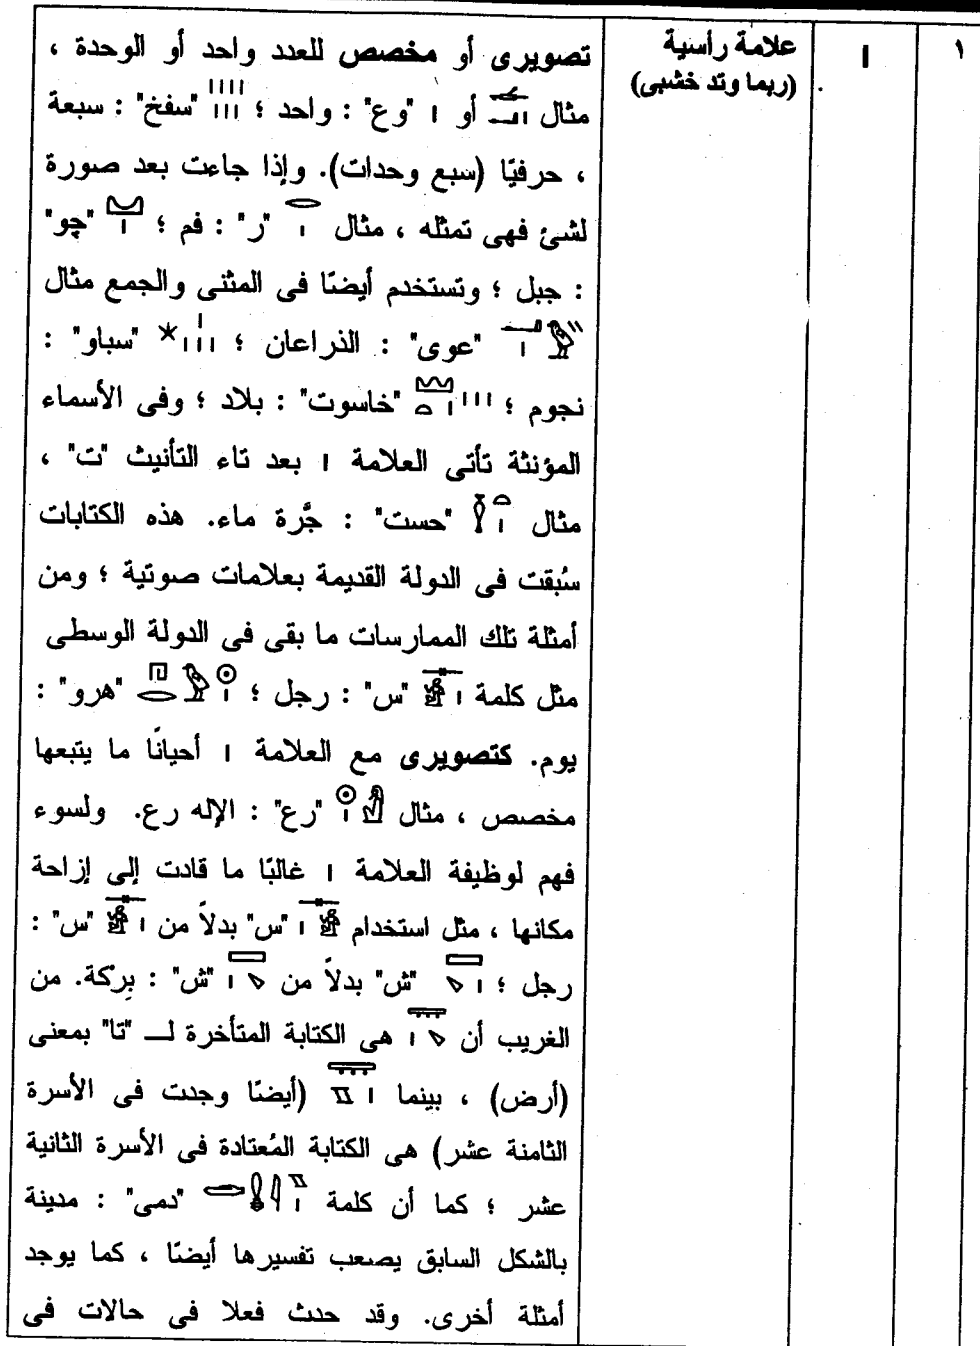 ١
𓏺
علامة رأسية
(ربما وتد خشبى)
تصويرى أو مخصص للعدد واحد أو الوحدة ،
مثال أو 𓏺 "وع" : واحد ؛ "سفخ" : سبعة
، حرفيًا (سبع وحدات). وإذا جاءت بعد صورة
لشئ فهى تمثله ، مثال 𓂋𓏺 "ر" : فم ؛ 𓈋𓏺 "چو"
: جبل ؛ وتستخدم أيضًا فى المثنى والجمع مثال
"عوى" : الذراعان ؛ "سباو" :
نجوم ؛ "خاسوت" : بلاد ؛ وفى الأسماء
المؤنثة تأتى العلامة 𓏺 بعد تاء التأنيث "ت" ،
مثال "حست" : جَّرة ماء. هذه الكتابات
سُبقت فى الدولة القديمة بعلامات صوتية ؛ ومن
أمثلة تلك الممارسات ما بقى فى الدولة الوسطى
مثل كلمة "س" : رجل ؛ "هرو" :
يوم. كتصويرى مع العلامة 𓏺 أحيانًا ما يتبعها
مخصص ، مثال "رع" : الإله رع. ولسوء
فهم لوظيفة العلامة 𓏺 غالبًا ما قادت إلى إزاحة
مكانها ، مثل استخدام "س" بدلاً من "س" :
رجل ؛ "ش" بدلاً من "ش" : بِركة. من
الغريب أن هى الكتابة المتأخرة لــ "تا" بمعنى
(أرض) ، بينما (أيضًا وجدت فى الأسرة
الثامنة عشر) هى الكتابة المُعتادة فى الأسرة الثانية
عشر ؛ كما أن كلمة "دمى" : مدينة
بالشكل السابق يصعب تفسيرها أيضًا ، كما يوجد
أمثلة أخرى. وقد حدث فعلا فى حالات فى